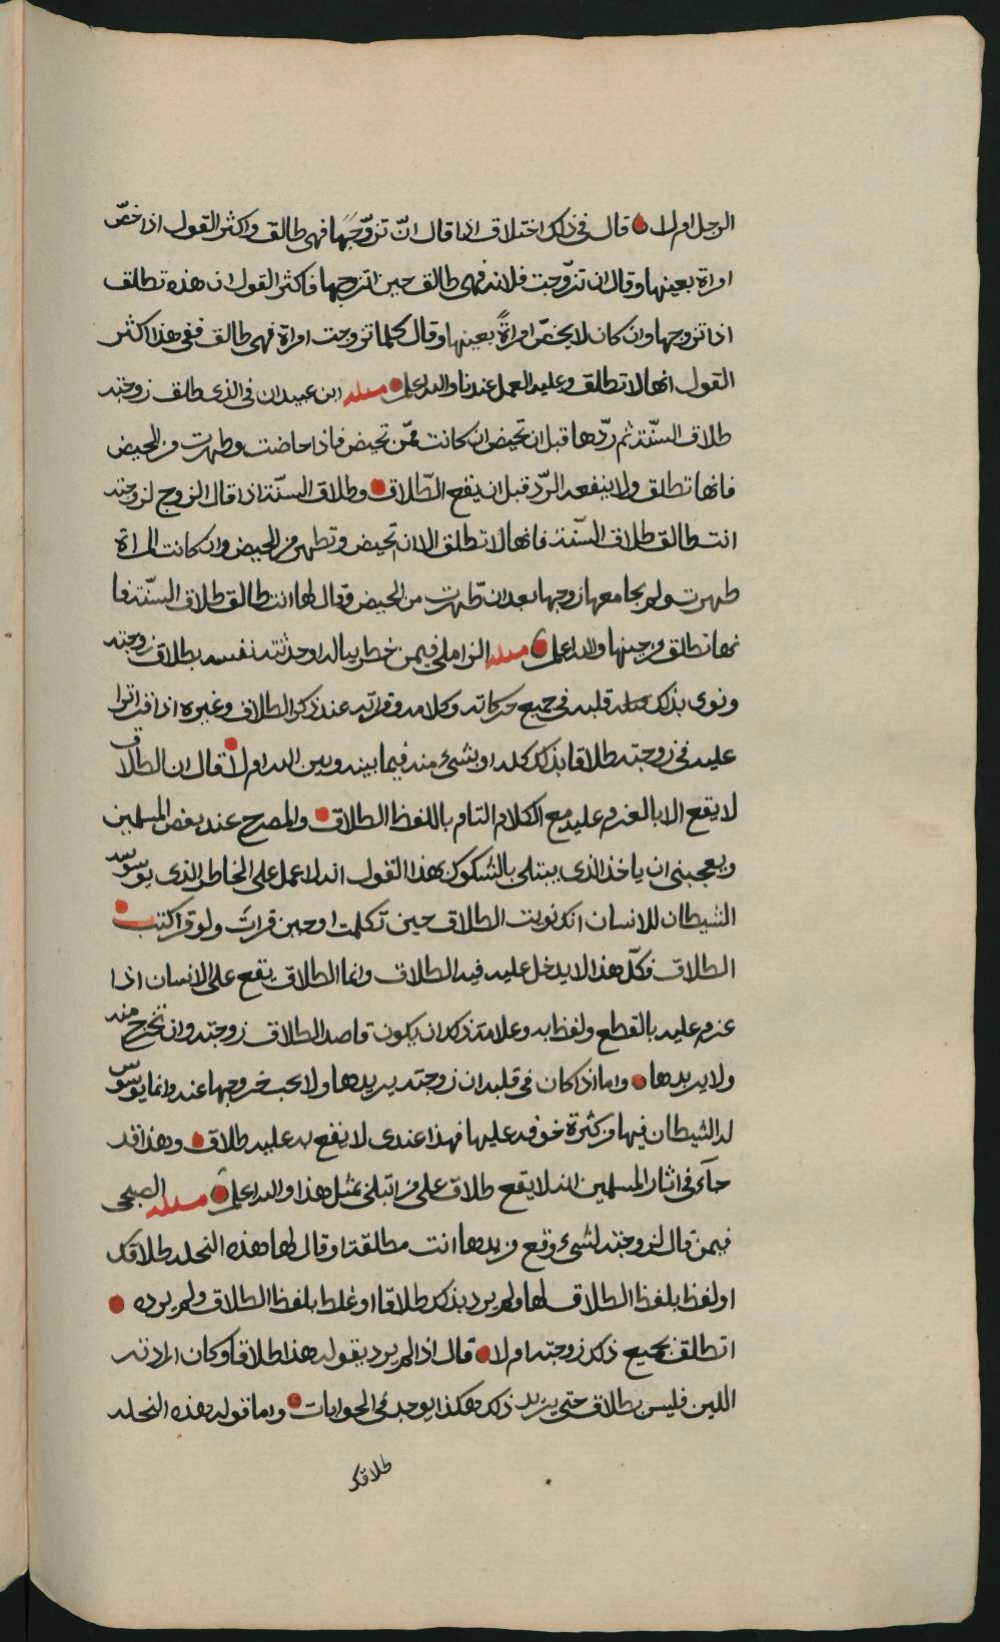 الرجل ام لا قال في ذلك اختلاف اذا قال ان تزوّجَهَا فهي طالق واكثر القول اذا خصّ
امراة بعينها وقال ان تزوّجت فلانه فهي طالق حين اتزوجها فاكثر القول ان هذه تطلق
اذا تزوجها وان كان لا يخصّ امراةً بعينها وقال كلما تزوجت امراة فهي طالق ففي هذا اكثر
القول انها لا تطلق وعليه العمل عندنا والله اعلم مسئله ابن عبيدان في الذي طلق زوجته
طلاق السنّة ثم ردّها قبل ان تحيض ان كانت ممّن تحيض فاذا حاضت وطهرت من الحيض
فانها تطلق ولا ينفعه الردّ قبل ان يقع الطّلاق وطلاق السنّة اذا قال الزوج لزوجته
انت طالق طلاق السنّة فانها لا تطلق الا ان تحيض وتطهر من الحيض وان كانت المراة
طهرت ولم يجامعها زوجها بعد ان طّهرت من الحيض وقال لها انت طالق طلاق السنّة فا
نها تطلق من حينها والله اعلم مسئله الزاملي فيمن خطر بباله او حدثته نفسه بطلاق زوجته
ونوى بذلك قلبه في جميع حركاته وكلامه وقراته عند ذكر الطلاق وغيره اذا قد اترا
عليه في زوجته طلاقا بذلك كله او بشيء منه فيما بينه وبين الله ام لا قال ان الطلاق
لا يقع الا بالعزم عليه مع الكلام التام باللفظ الطلاق والمصرح عند بعض المسلمين
ويعجبني ان ياخذ الذي يبتلى بالشكوك بهذا القول انه لا عمل على الخاطر الذي يوسوسه
الشيطان للانسان انك نويت الطلاق حين تكلمت او حين قرات ولو قرا كتب
الطلاق فكلّ هذا لا يدخل عليه فيه الطلاق وانما الطلاق يقع على الانسان اذا
عزم عليه بالقطع ولفظ به وعلامة ذلك ان يكون قاصد الطلاق زوجته وان تخرج منه
ولا يريدها واما اذا كان في قلبه ان زوجته يريدها ولا يحب خروجها عنه وانما يوسوس
له الشيطان فيها من كثرة خوفه عليها فهذا عندي لا يقع به عليه طلاق وهذا قد
جآء في اثار المسلمين انه لا يقع طلاق على من ابتلى بمثل هذا والله اعلم مسئله الصبحي
فيمن قال لزوجته لشيء وقع من يدها انت مطلقة او قال لها هذه النخله طلاقك
او لفظ بلفظ الطلاق لها ولم يرد بذلك طلاقا او غلط بلفظ الطلاق ولم يرده
اتطلق بجميع ذلك زوجته ام لا قال اذا لم يرد بقوله هذا طلاقا وكان ارادته
اللين فليس بطلاق حتى يريد ذلك هكذا يوجد في الجوابات واما قوله هذه النخله
طلاقك